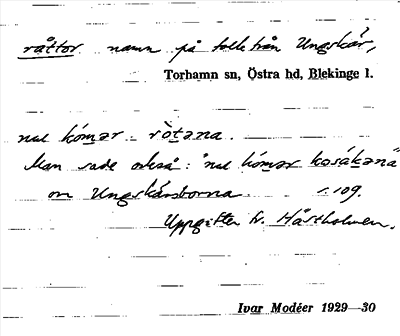 råttor namn på folk från Ungskär,
Torhamn sn, Östra hd, Blekinge l.
nu kómər ròtəna.
Man sade också: "nu kómər kəsákəna"
om Ungskärsborna. s. 109.
Uppgiften fr. Hästholmen.
Ivar Modéer 1929—30